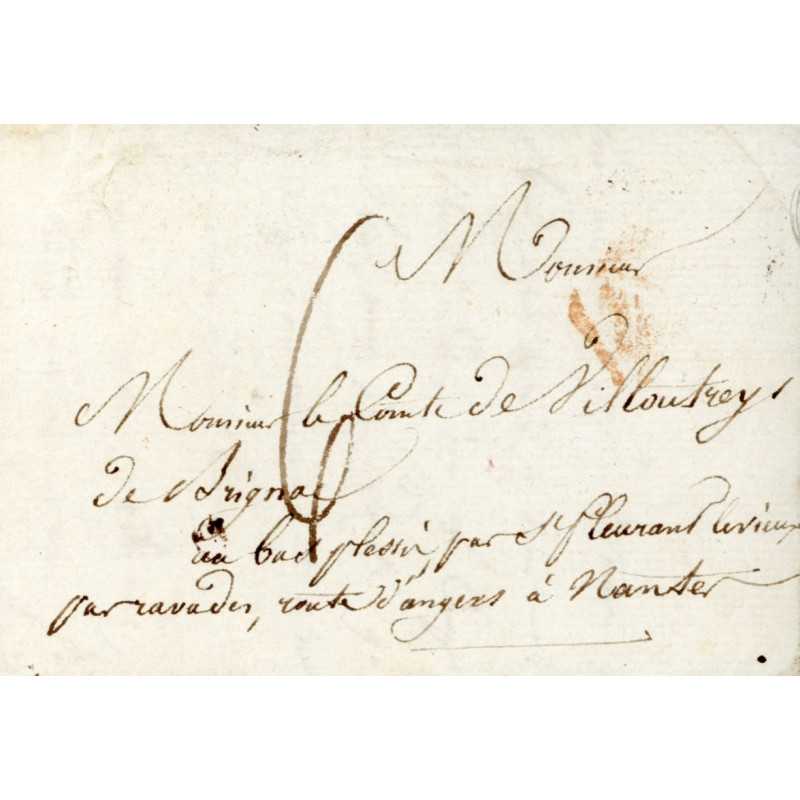 Monsieur
Monsieur le Comte de Villoutreys
de Brignac
au bas plessis, par St fleurant le vieux
par ravades, route d'angers à Nantes
6